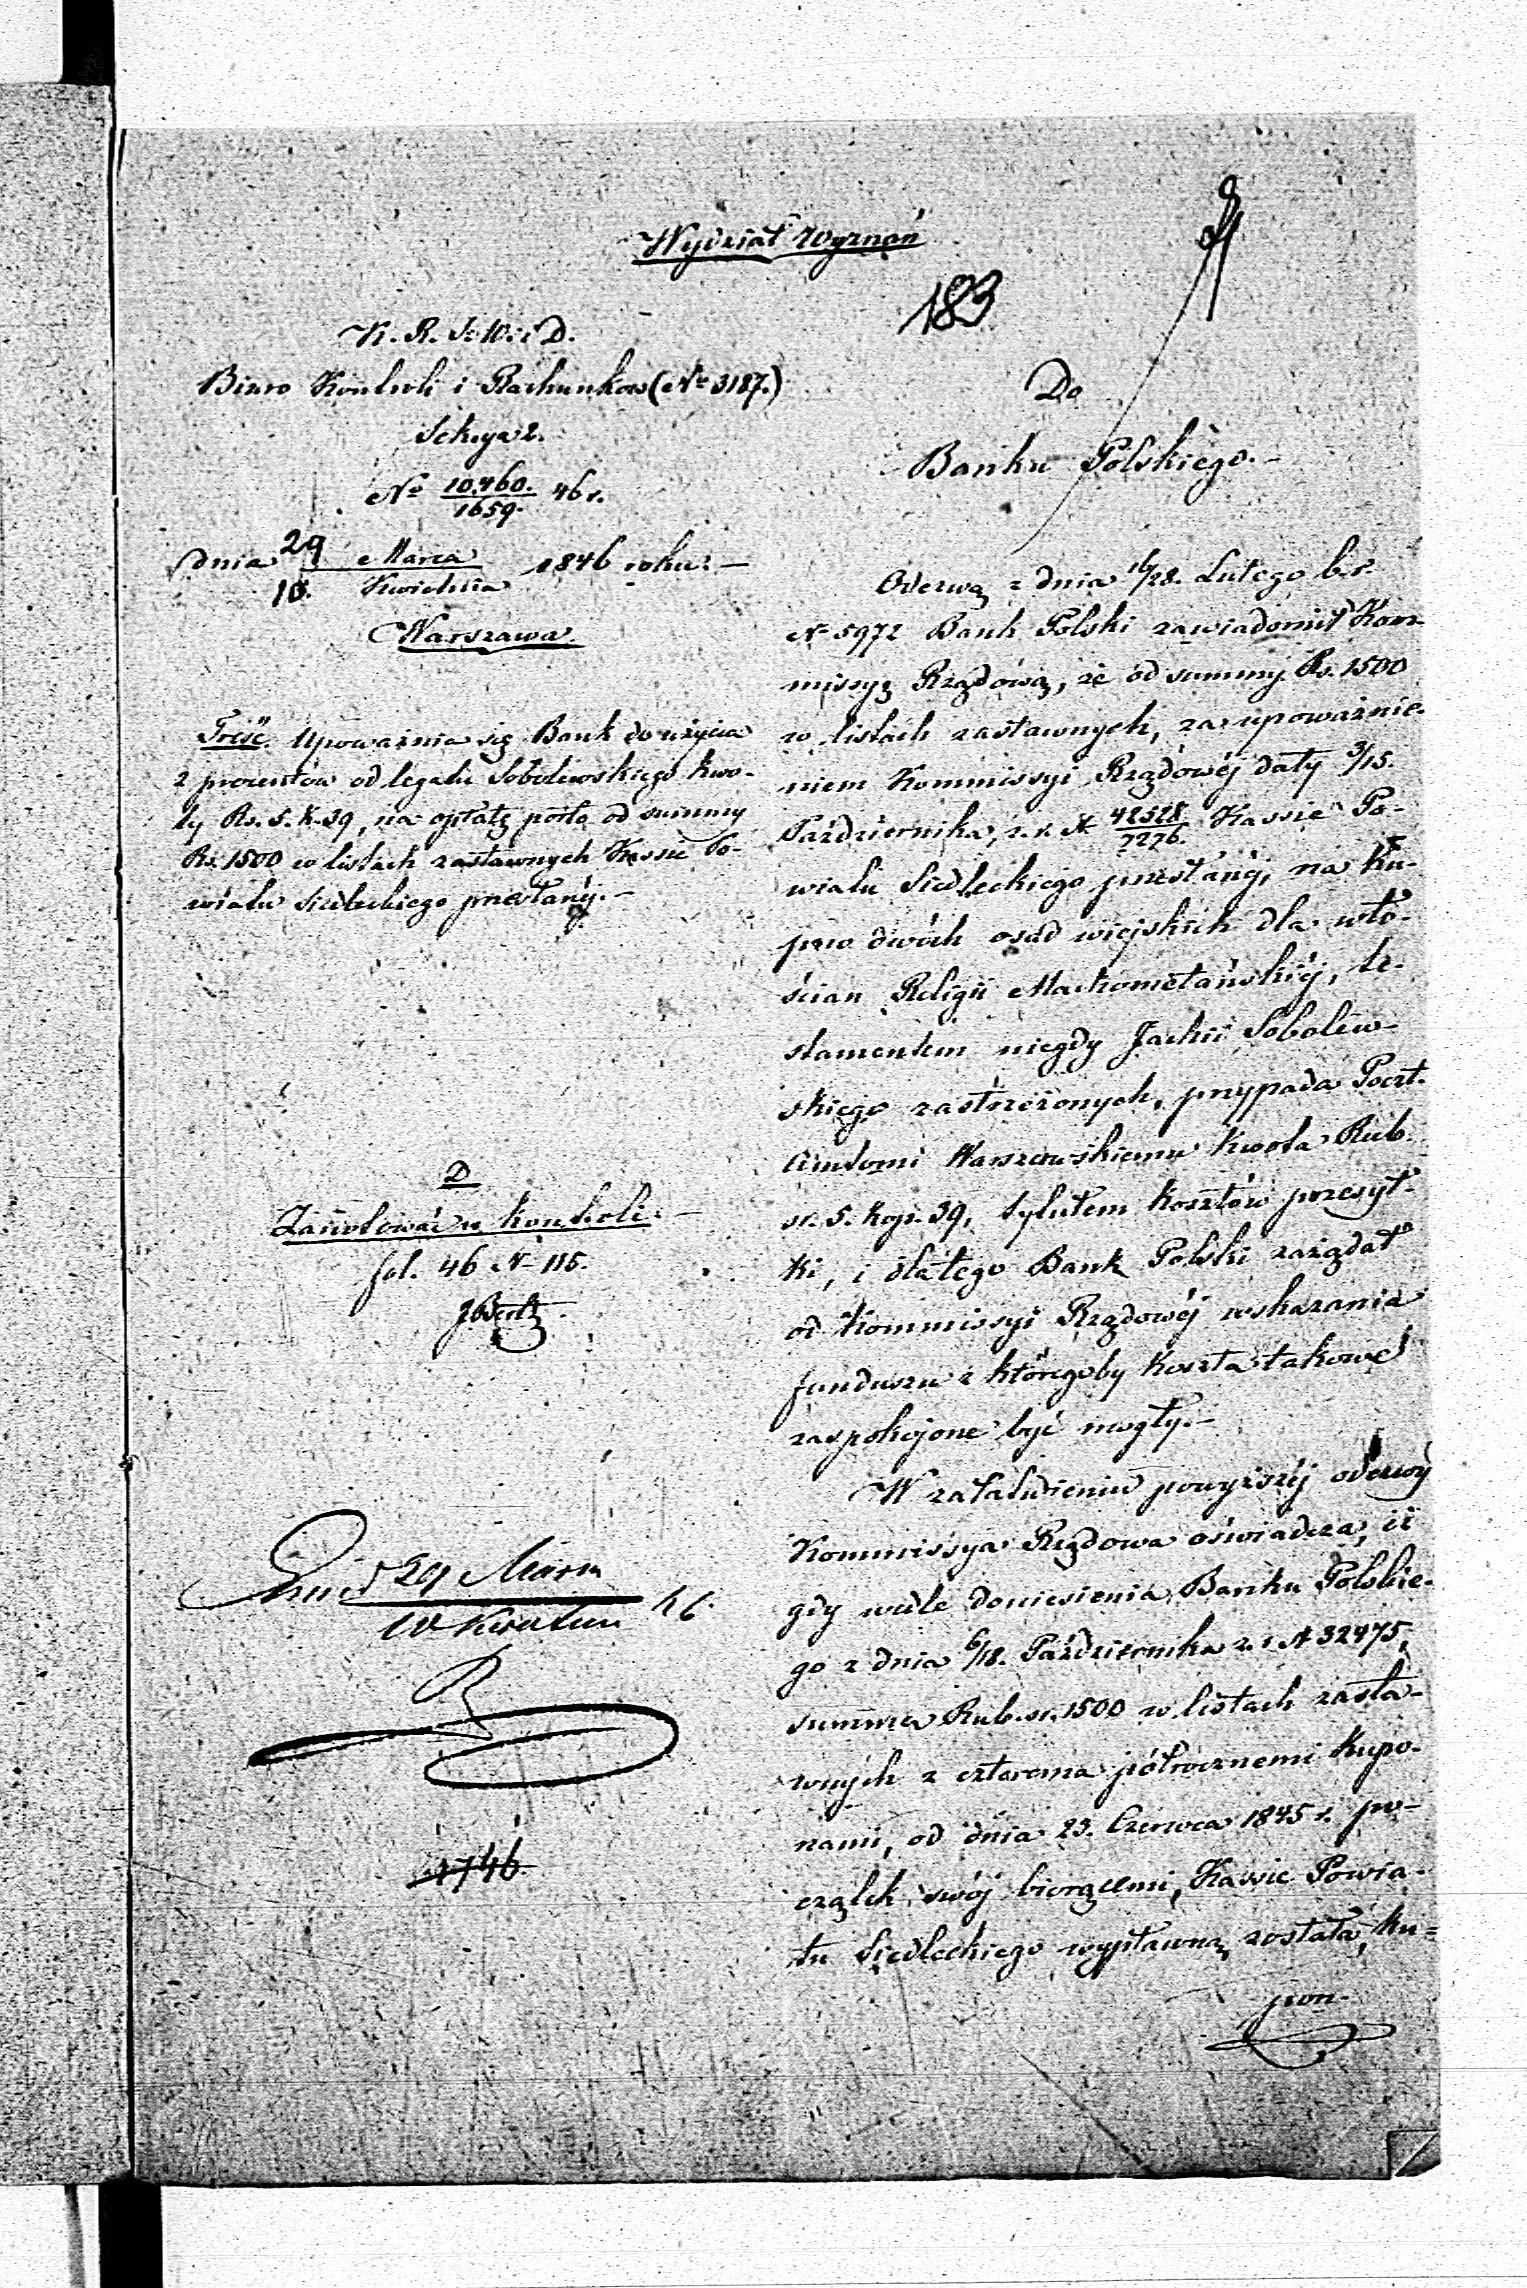 Wydział Wyznań
183
K. R. S. W. i D.
Biuro Kontroli i Rachunków (No 3187.)
Sekcya 2.
No 10,460./1659. 46 r.
dnia 29 Marca/10. Kwietnia 1846 roku. –
Warszawa.
Treść. Upoważnia się Bank do użycia
z procentów od legatu Sobolewskiego kwo-
ty Rs. 5. k. 39, na opłatę porto od summy
Rs. 1500 w listach zastawnych Kassie Po-
wiatu Siedleckiego przesłanéj. –
D
Zanotować w kontroli. –
fol. 46 N 115.
Dnia 29 Marca/10 Kwietnia 46.
1746
Do
Banku Polskiego. –
Odezwą z dnia 16/28. Lutego b. r.
N 5972 Bank Polski zawiadomił Kom-
missyę Rządową, że od summy Rs. 1500
w listach zastawnych, za upoważnie-
niem Kommissyi Rządowéj daty 3/15.
Października, z. r. N 42528/7276. Kassie Po-
wiatu Siedleckiego przesłanéj, na ku-
pno dwóch osad wiejskich dla wło-
ścian Religii Machometańskiéj, te-
stamentem niegdy Jachii Sobolew-
skiego zastrzeżonych, przypada Poczt-
Amtowi Warszawskiemu kwota Rub.
sr. 5. kop. 39, tytułem kosztów przesył-
ki, i dlatego Bank Polski zażądał
od Kommissyi Rządowéj wskazania
funduszu z któregoby koszta takowe
zaspokojone być mogły. –
W załatwieniu powyższéj odezwy
Kommissya Rządowa oświadcza, iż
gdy wedle doniesienia Banku Polskie-
go z dnia 6/18. Października z. r. N 32475,
summa Rub. sr. 1500 w listach zasta-
wnych z czterema półrocznemi kupo-
nami, od dnia 23. Czerwca 1845 r. po-
czątek swój biorącemi, Kassie Powia-
tu Siedleckiego wysłaną została, ku=
pon-